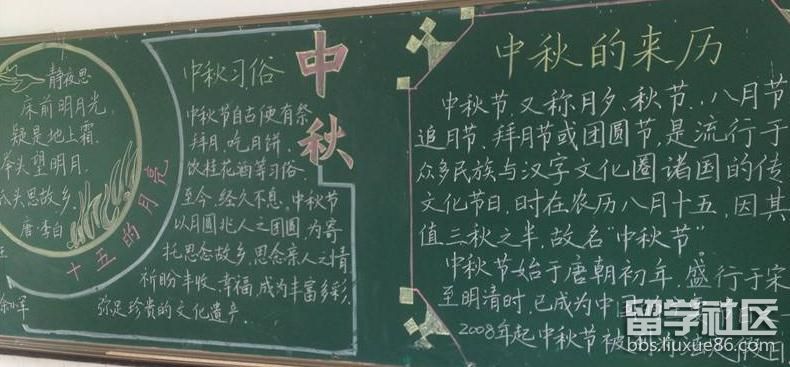 静夜思
床前明月光,
疑是地上霜.
举头望明月,
头思故乡.
唐·李白
十五的月亮
中秋
中秋习俗
中秋节自古便有祭
拜月、吃月饼、
饮桂花酒等习俗,
至今,经久不息,中秋节
以月圆兆人之团圆,为寄
托思念故乡,思念亲人之情
祈盼丰收、幸福,成为丰富多彩
弥足珍贵的文化遗产.
中秋的来历
中秋节,又称月夕、秋节、八月节
追月节、拜月节或团圆节,是流行于
众多民族与汉字文化圈诸国的传
文化节日,时在农历八月十五,因其
值三秋之半,故名“中秋节”
中秋节始于唐朝初年,盛行于宋
至明清时,已成为中国
2008年起中秋节被
假日
留学社区
bbs.liuxue86.com